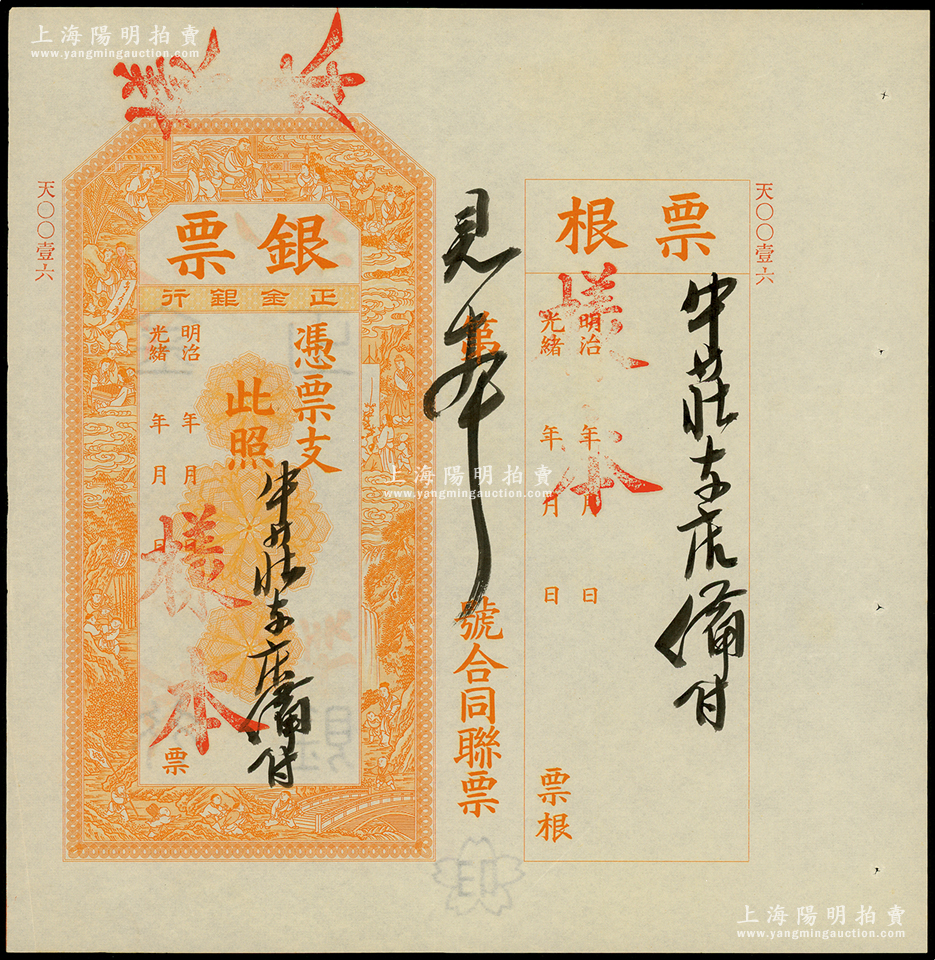 上海陽明拍賣
www.yangmingauction.com
天〇〇壹六
票根
明治 年 月 日
光緒 年 月 日
票根
樣本
牛莊支店備付
天〇〇壹六
第 號合同聯票
見本
銀票
正金銀行
憑票支
牛莊支店備付
此照
明治 年 月 日
光緒 年 月 日
票
樣本
上海陽明拍賣
www.yangmingauction.com
上海陽明拍賣
www.yangmingauction.com